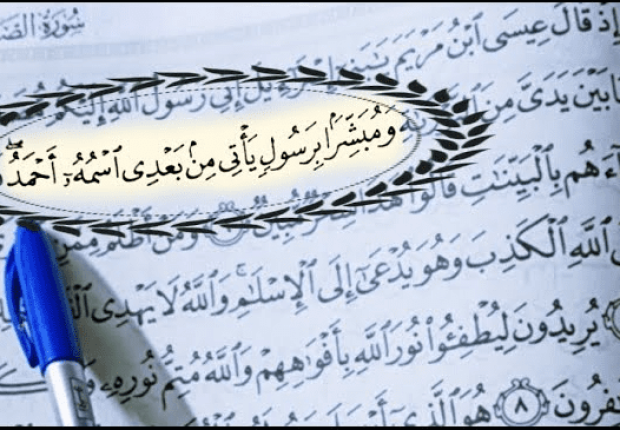 سُورَةُ الصَّ
إِذْ قَالَ عِيسَى ٱبْنُ مَرْيَمَ يَٰبَنِىٓ إِسْرَٰٓءِيلَ إِنِّى رَسُولُ ٱللَّهِ إِلَيْكُم
بَيْنَ يَدَىَّ مِنَ
وَمُبَشِّرَۢا بِرَسُولٍ يَأْتِى مِنۢ بَعْدِى ٱسْمُهُۥٓ أَحْمَدُ ۖ
ءَهُم بِٱلْبَيِّنَٰتِ قَالُوا۟ هَٰذَا سِحْرٌ مُّبِينٌ ۝٦ وَمَنْ أَظْلَمُ مِمَّنِ
ٱللَّهِ ٱلْكَذِبَ وَهُوَ يُدْعَىٰٓ إِلَى ٱلْإِسْلَٰمِ ۚ وَٱللَّهُ لَا يَهْدِى
يُرِيدُونَ لِيُطْفِـُٔوا۟ نُورَ ٱللَّهِ بِأَفْوَٰهِهِمْ وَٱللَّهُ مُتِمُّ نُورِهِۦ
فِرُونَ ۝٨ هُوَ ٱلَّذِىٓ